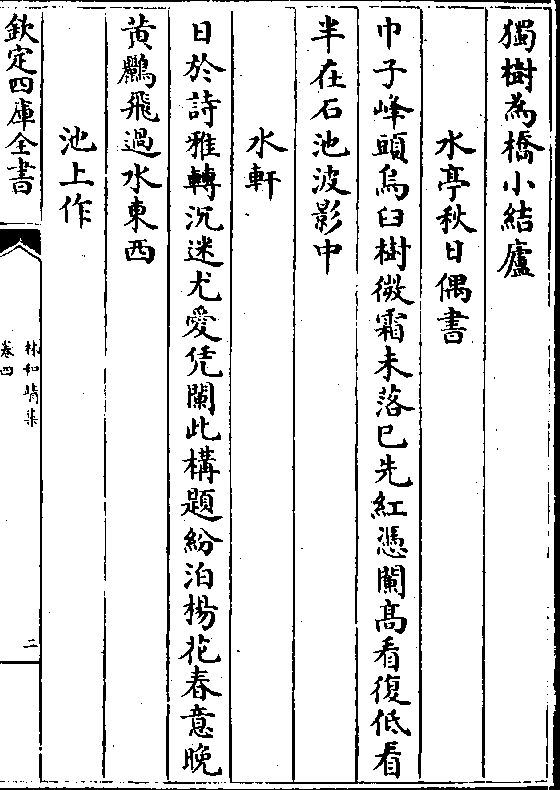 獨樹為橋小結廬
水亭秋日偶書
巾子峰頭烏臼樹微霜未落已先紅憑闌髙看復低看
半在石池波影中
水軒
日於詩雅轉沉迷尤愛凭闌此構題紛泊楊花春意晚
黄鸝飛過水東西
池上作
欽定四庫全書
林和靖集
卷四
二